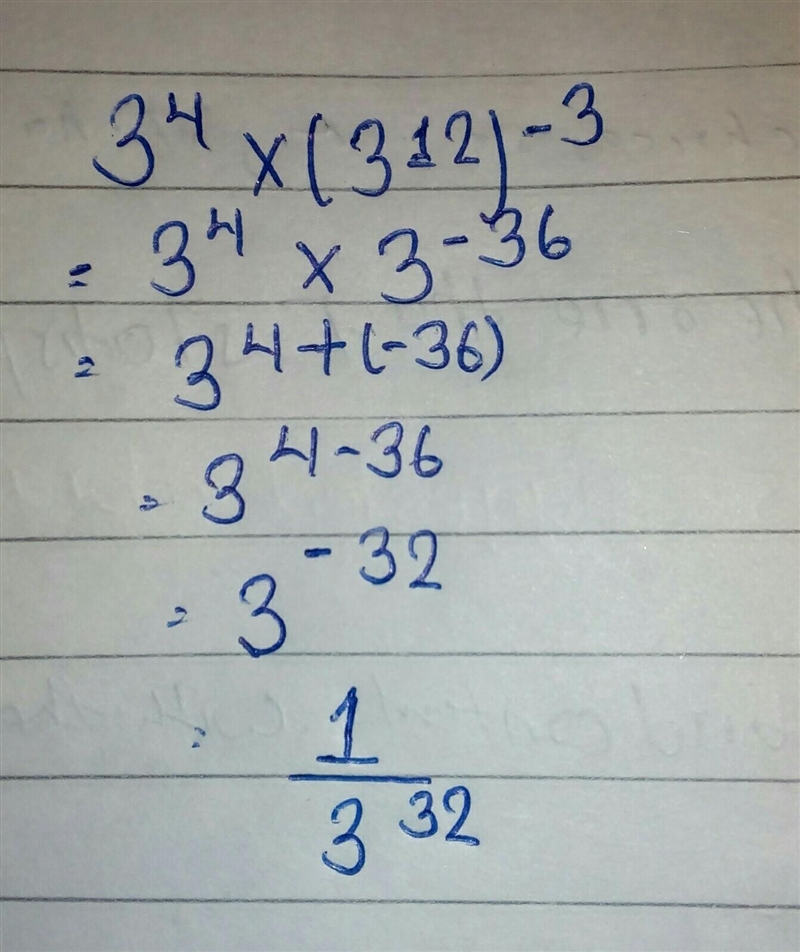 3⁴ × (312)⁻³
= 3⁴ × 3⁻³⁶
= 3⁴⁺⁽⁻³⁶⁾
= 3⁴⁻³⁶
= 3⁻³²
= 1
3³²